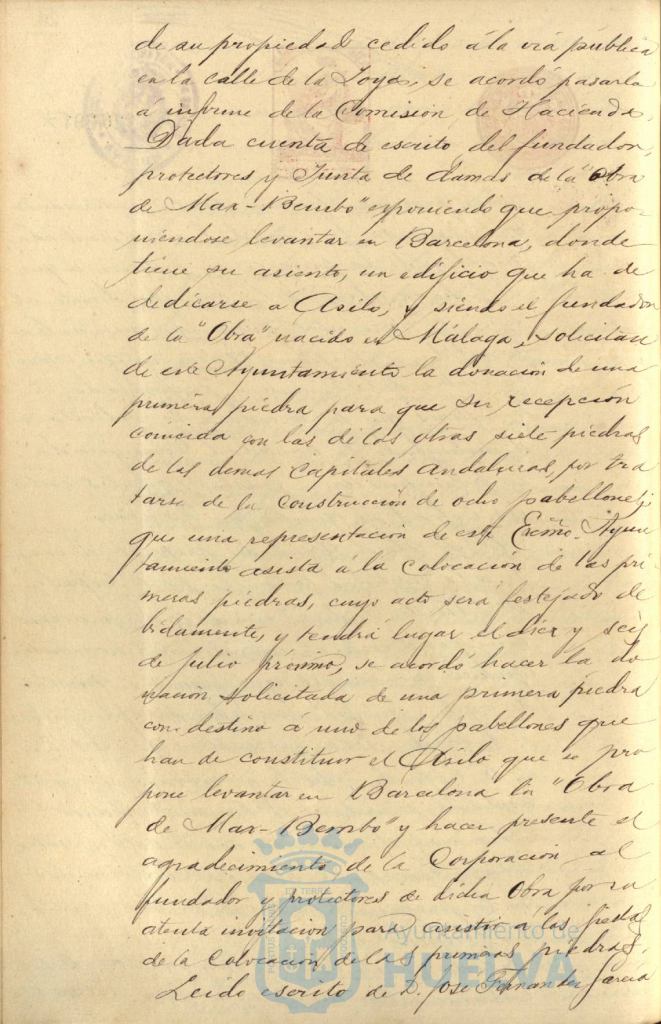 de su propiedad cedido á la via pública
en la calle de la Joya, se acordó pasarla
á informe de la Comisión de Hacienda.
Dada cuenta de escrito del fundador,
protectores y Junta de damas de la "Obra
de Max-Bembo" exponiendo que propo-
niéndose levantar en Barcelona, donde
tiene su asiento, un edificio que ha de
dedicarse á Asilo, y siendo el fundador
de la "Obra" nacido en Málaga, solicitan
de este Ayuntamiento la donación de una
primera piedra para que su recepción
coincida con las de las otras siete piedras
de las demas capitales andaluzas, por tra
tarse de la construcción de ocho pabellones;
que una representación de este Excmo. Ayun
tamiento asista á la colocación de las pri
meras piedras, cuyo acto será festejado de
bidamente, y tendrá lugar el diez y seis
de julio próximo, se acordó hacer la do
nación solicitada de una primera piedra
con destino á uno de los pabellones que
han de constituir el Asilo que se pro
pone levantar en Barcelona la "Obra
de Max-Bembo" y hacer presente el
agradecimiento de la Corporación al
fundador y protectores de dicha Obra por su
atenta invitacion para asistir á las fiestas
de la colocación de las primeras piedras.
Leido escrito de D. José Fernandez García
Ayuntamiento de
HUELVA